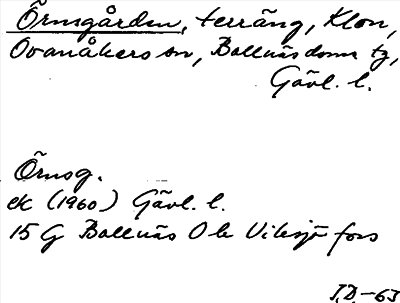 Örnsgården, terräng, Klon,
Ovanåkers sn, Bollnäs doms tg,
Gävl. l.
Örnsg.
ek (1960) Gävl. l.
15 G Bollnäs O b Vilsjö fors
I.D.-63